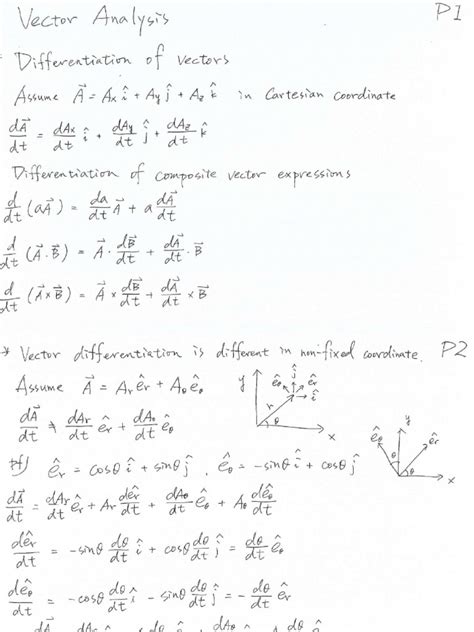 Vector Analysis P1
Differentiation of vectors
Assume A⃗ = Ax î + Ay ĵ + Az k̂ in Cartesian coordinate
dA⃗/dt = dAx/dt î + dAy/dt ĵ + dAz/dt k̂
Differentiation of composite vector expressions
d/dt (aA⃗) = da/dt A⃗ + a dA⃗/dt
d/dt (A⃗·B⃗) = A⃗· dB⃗/dt + dA⃗/dt · B⃗
d/dt (A⃗×B⃗) = A⃗× dB⃗/dt + dA⃗/dt × B⃗
* Vector differentiation is different in non-fixed coordinate. P2
Assume A⃗ = Ar êr + Aθ êθ
dA⃗/dt ≠ dAr/dt êr + dAθ/dt êθ
y êθ ĵ êr î r θ x
y êθ θ êr θ x
pf) êr = cosθ î + sinθ ĵ , êθ = -sinθ î + cosθ ĵ
dA⃗/dt = dAr/dt êr + Ar dêr/dt + dAθ/dt êθ + Aθ dêθ/dt
dêr/dt = -sinθ dθ/dt î + cosθ dθ/dt ĵ = dθ/dt êθ
dêθ/dt = -cosθ dθ/dt î - sinθ dθ/dt ĵ = - dθ/dt êr